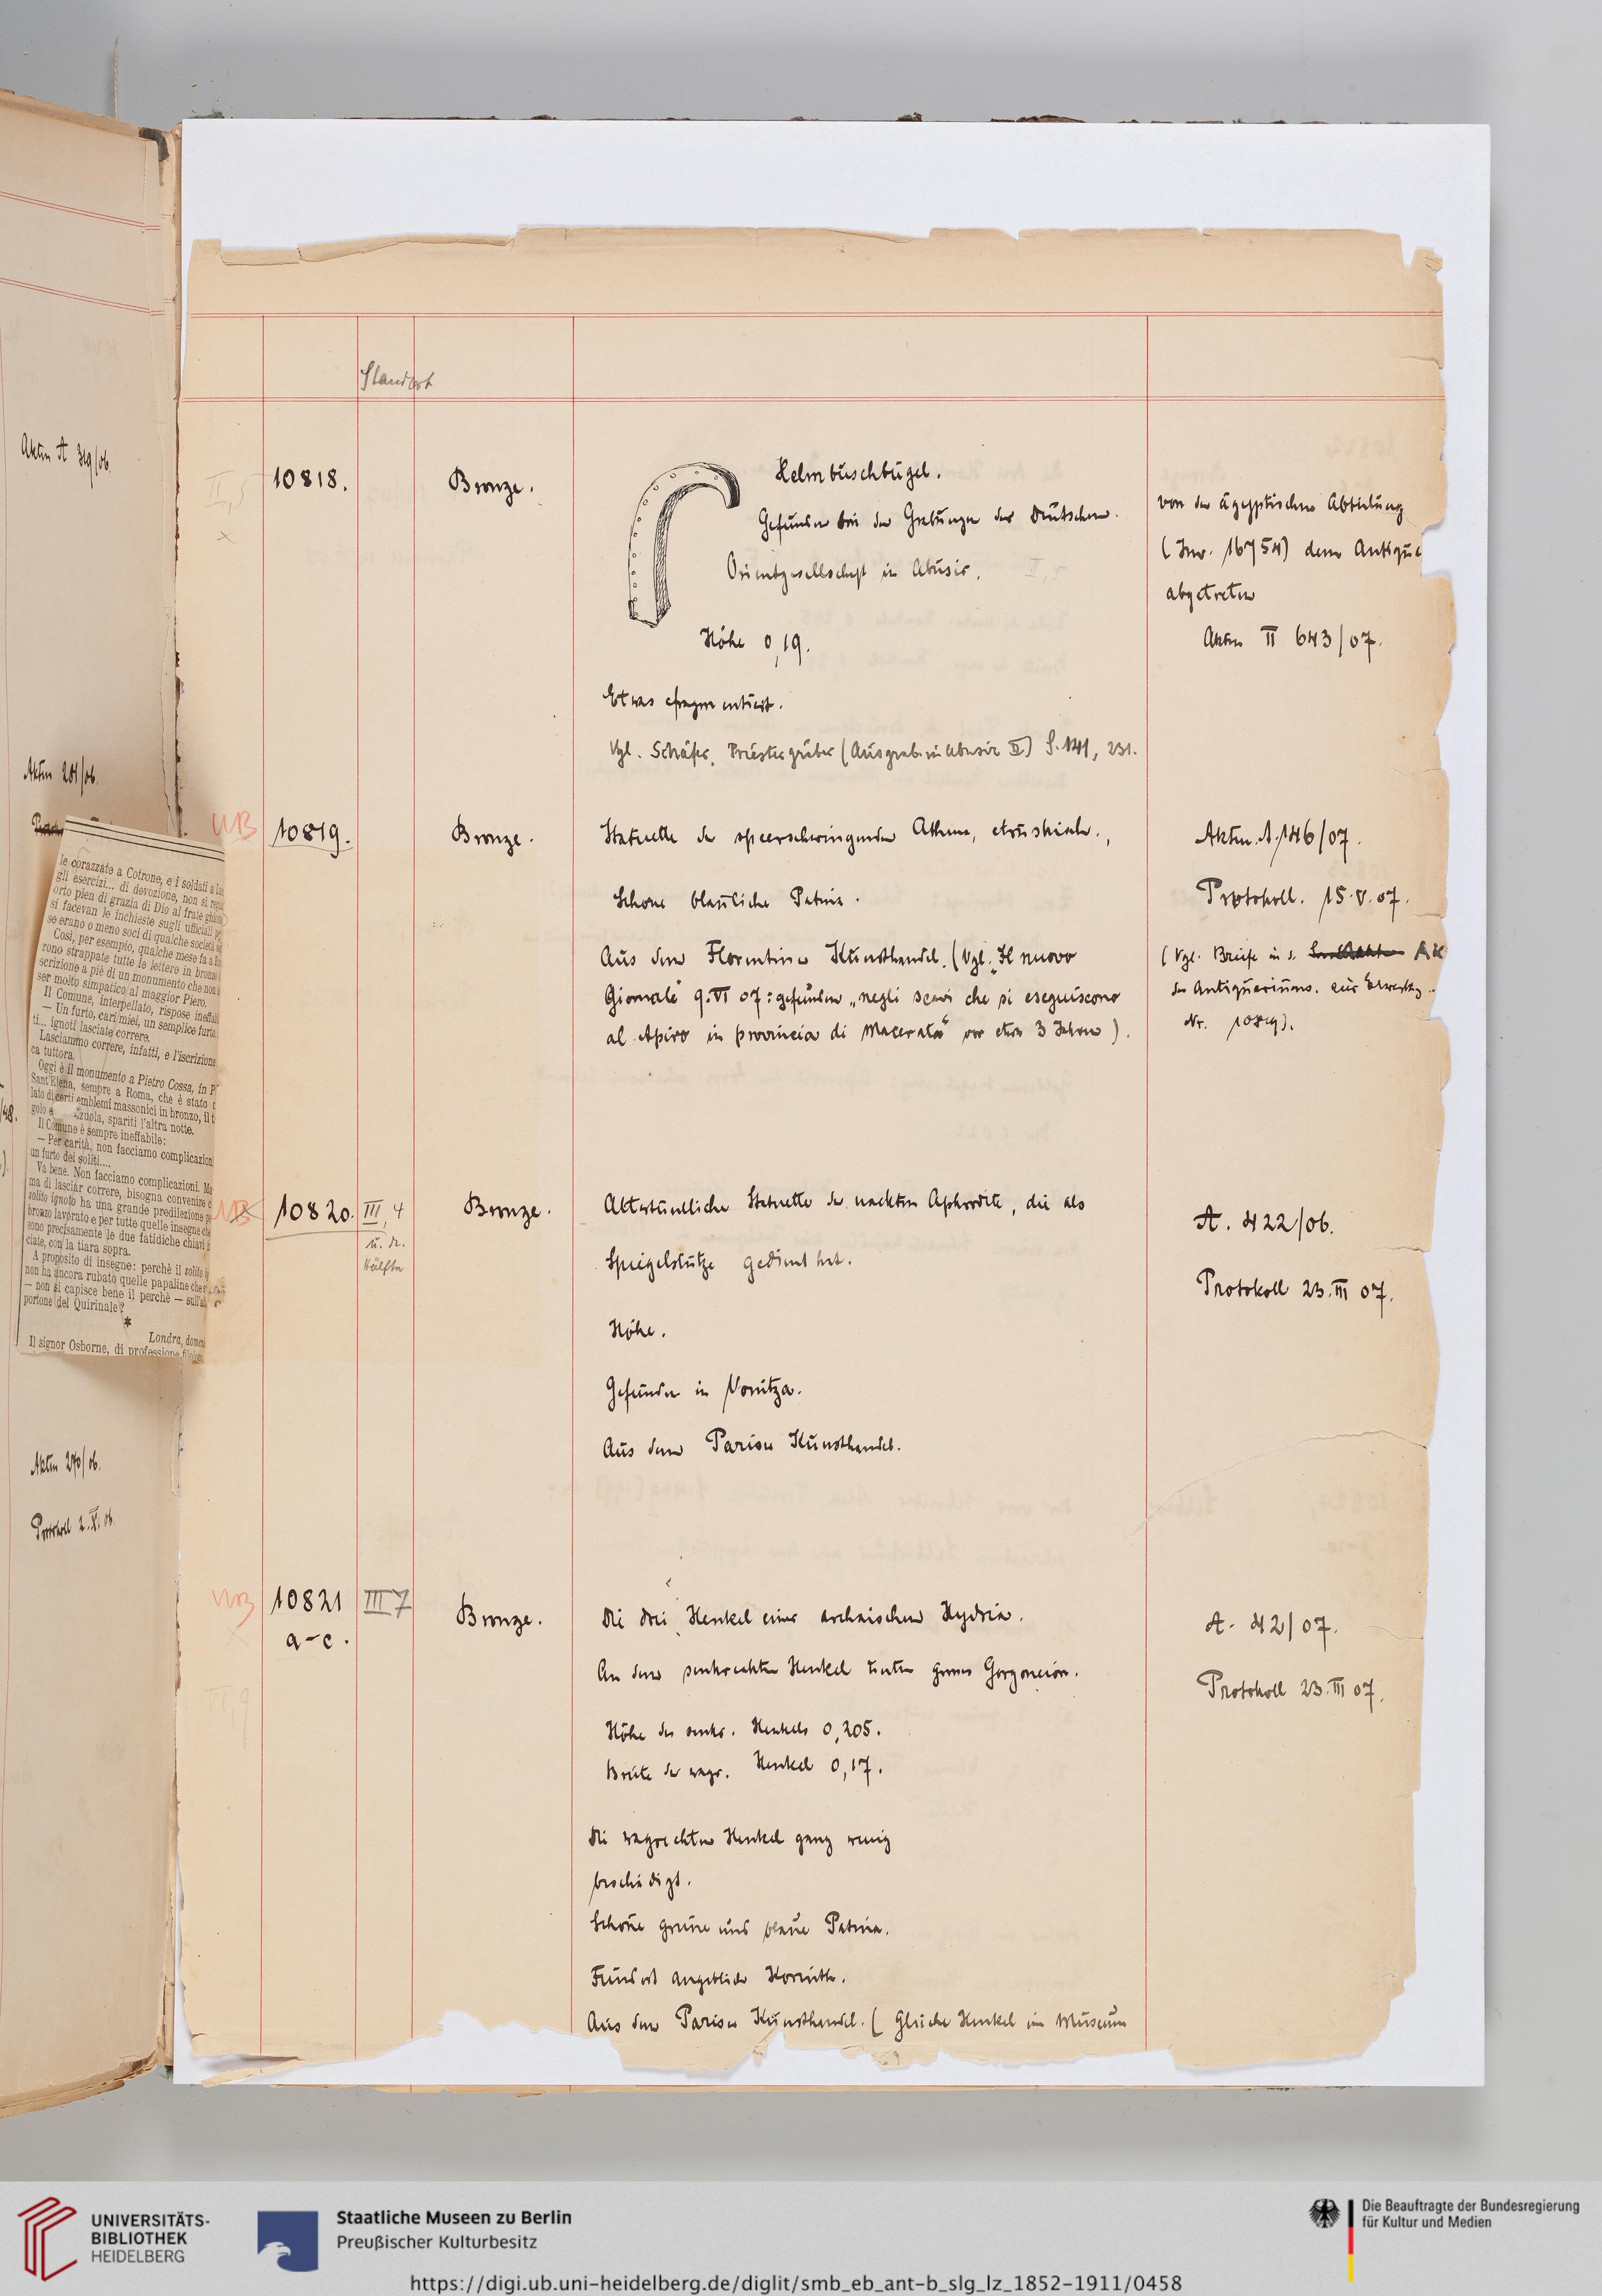 Akten A 319/06.
Akten 281/06.
le corazzate a Cotrone, e i soldati a
gli esercizi... di devozione, non si
orto pien di grazia di Dio al frate
si facevan le inchieste sugli ufficiali
se erano o meno soci di qualche società
Così, per esempio, qualche mese fa a
rono strappate tutte le lettere in bronzo
scrizione a piè di un monumento che non
ser molto simpatico al maggior Piero.
Il Comune, interpellato, rispose
— Un furto, cari miei, un semplice furto
ti... ignoti lasciate correre.
Lasciammo correre, infatti, e l'iscrizione
ca tuttora.
Oggi è il monumento a Pietro Cossa, in
Sant'Elena, sempre a Roma, che è stato
lato di certi emblemi massonici in bronzo, il
golo e zzuola, spariti l'altra notte.
Il Comune è sempre ineffabile:
— Per carità, non facciamo complicazioni
un furto dei soliti....
Va bene. Non facciamo complicazioni. Ma
ma di lasciar correre, bisogna convenire
solito ignoto ha una grande predilezione
bronzo lavorato e per tutte quelle insegne che
sono precisamente le due fatidiche chiavi
ciate, con la tiara sopra.
A proposito di insegne: perchè il solito
non ha ancora rubato quelle papaline che
— non si capisce bene il perchè — sull'
portone del Quirinale?
*
Londra,
Il signor Osborne, di professione
Akten 270/06.
Protokoll 2.XI.06.
Standort
II,5
×
10818.
Bronze.
Helmbuschbügel.
Gefunden bei den Grabungen der Deutschen
Orientgesellschaft in Abusir.
Höhe 0,19.
Etwas fragmentiert.
Vgl. Schäfer, Priestergräber (Ausgrab. in Abusir II) S. 141, 231.
von der ägyptischen Abteilung
(Inv. 16754) dem Antiqu
abgetreten
Akten II 643/07.
UB
10819.
Bronze.
Statuette der speerschwingenden Athena, etruskisch.
Schöne bläuliche Patina.
Aus dem Florentiner Kunsthandel. (Vgl. „Il nuovo
Giornale" 9.VI 07: gefunden „negli scavi che si eseguiscono
al Apiro in provincia di Macerata" vor etwa 3 Jahren).
Akten A. 146/07.
Protokoll. 15.V.07.
(Vgl. Briefe in d. Ak
des Antiquariums. zur Erwerbg.
Nr. 10819).
UB
10820.
III, 4
u. r.
Hälfte
Bronze.
Altertümliche Statuette der nackten Aphrodite, die als
Spiegelstütze gedient hat.
Höhe.
Gefunden in Vonitza.
Aus dem Pariser Kunsthandel.
A. 422/06.
Protokoll 23.III 07.
UB
10821
a-c.
III 7
VI, 9
Bronze.
Die drei Henkel einer archaischen Hydria.
An dem senkrechten Henkel unten grosses Gorgoneion.
Höhe des senkr. Henkels 0,205.
Breite der wagr. Henkel 0,17.
Die wagrechten Henkel ganz wenig
beschädigt.
Schöne grüne und blaue Patina.
Fundort angeblich Korinth.
Aus dem Pariser Kunsthandel. (Gleiche Henkel im Museum
A. 42/07.
Protokoll 23.III 07.
UNIVERSITÄTS-
BIBLIOTHEK
HEIDELBERG
Staatliche Museen zu Berlin
Preußischer Kulturbesitz
Die Beauftragte der Bundesregierung
für Kultur und Medien
https://digi.ub.uni-heidelberg.de/diglit/smb_eb_ant-b_slg_lz_1852-1911/0458